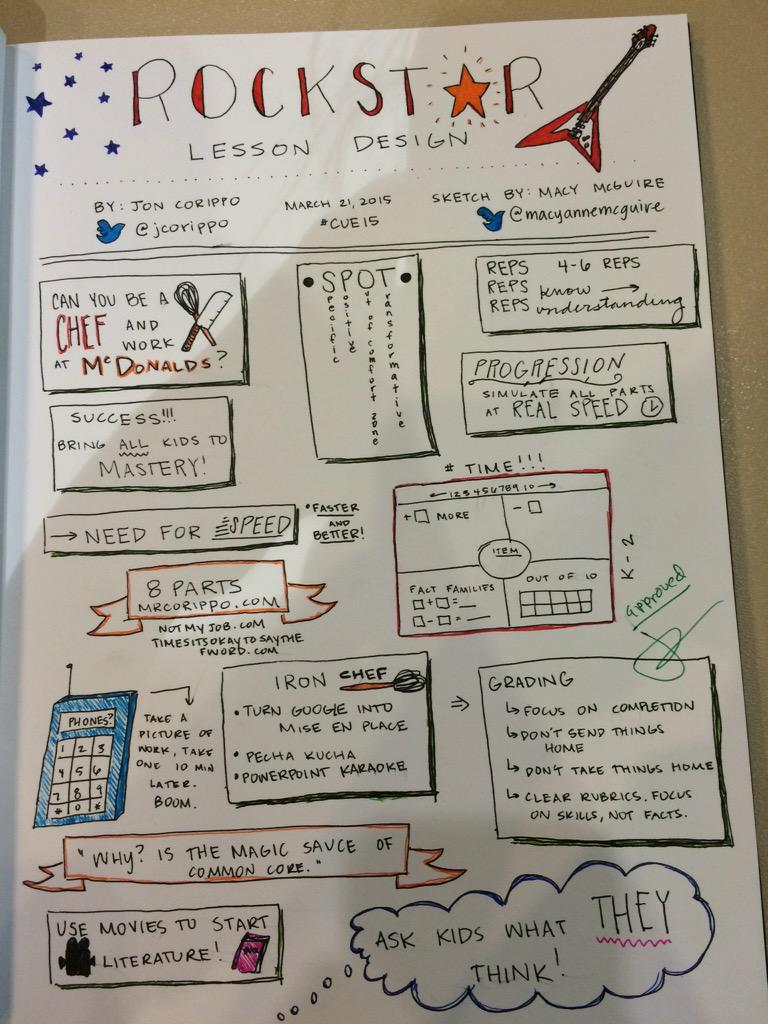 ROCKSTAR
LESSON DESIGN
BY: JON CORIPPO
@jcorippo
MARCH 21, 2015
#CUE15
SKETCH BY: MACY MCGUIRE
@macyannemcguire
CAN YOU BE A
CHEF AND
WORK
AT MCDONALDS?
• SPOT •
specific
positive
out of comfort zone
transformative
REPS 4-6 REPS
REPS know →
REPS understanding
PROGRESSION
SIMULATE ALL PARTS
AT REAL SPEED
SUCCESS!!!
BRING ALL KIDS TO
MASTERY!
→ NEED FOR SPEED
•FASTER
AND
BETTER!
# TIME!!!
← 1 2 3 4 5 6 7 8 9 10 →
+ □ MORE
- □
ITEM
FACT FAMILIES
□+□=__
□-□=__
OUT OF 10
K-2
approved
8 PARTS
MRCORIPPO.COM
NOTMYJOB.COM
TIMESITSOKAYTOSAYTHE
FWORD.COM
PHONES?
1 2 3
4 5 6
7 8 9
* 0 *
TAKE A
PICTURE OF
WORK, TAKE
ONE 10 MIN
LATER.
BOOM.
IRON CHEF
• TURN GOOGLE INTO
MISE EN PLACE
• PECHA KUCHA
• POWERPOINT KARAOKE
⇒
GRADING
↳ FOCUS ON COMPLETION
↳ DON'T SEND THINGS
HOME
↳ DON'T TAKE THINGS HOME
↳ CLEAR RUBRICS. FOCUS
ON SKILLS, NOT FACTS.
"WHY? IS THE MAGIC SAUCE OF
COMMON CORE."
USE MOVIES TO START
LITERATURE!
ASK KIDS WHAT THEY
THINK!